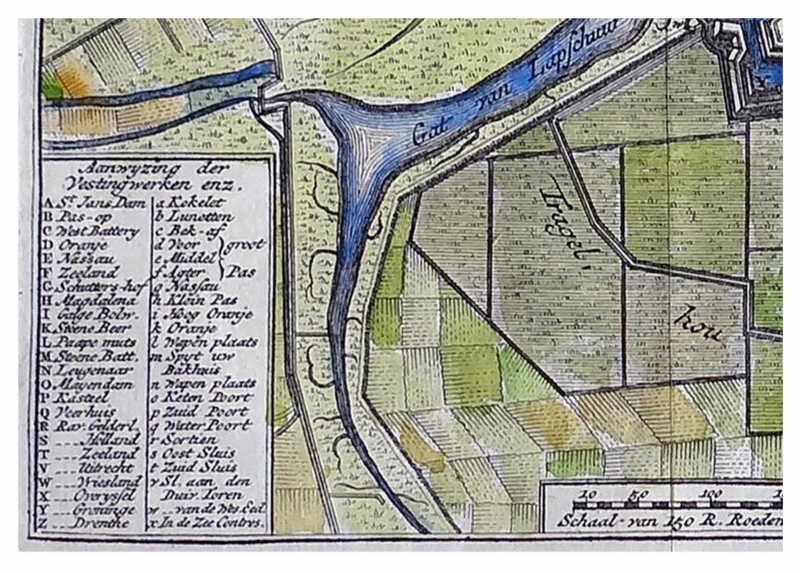 Gat van Lapschuur
Aanwyzing der
Vestingwerken enz.
A St. Jans Dam
B Pas-op
C West Battery
D Oranje
E Nassau
F Zeeland
G Schutters-hof
H Magdalena
I Galge Bolw.
K Steene Beer
L Paape muts
M Steene Batt.
N Leugenaar
O Mayendam
P Kasteel
Q Veerhuis
R Rav. Gelderl.
S ... Holland
T ... Zeeland
V ... Uitrecht
W ... Vriesland
X ... Overyssel
Y ... Groninge
Z ... Drenthe
a Kokelet
b Lunetten
c Bek-af
d Voor groot
e Middel
f Agter Pas
g Nassau
h Klein Pas
i Hoog Oranje
k Oranje
l Wapen plaats
m Spyt uw
Bakhuis
n Wapen plaats
o Keten Poort
p Zuid Poort
q Water Poort
r Sortien
s Oost Sluis
t Zuid Sluis
v Sl. aan den
Duiv. Toren
w .. van de Wes. Eed.
x In de Zee Contres.
Tragel
hou
10 50 100
Schaal van 150 R. Roeden